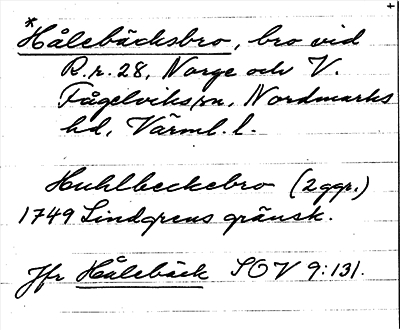 *Hålebäcksbro, bro vid
R.r. 28, Norge och V.
Fågelviks sn, Nordmarks
hd, Värml. l.
Huhlbeckebro (2 ggr.)
1749 Lindgrens gränsk.
Jfr Hålebäck SOV 9:131.